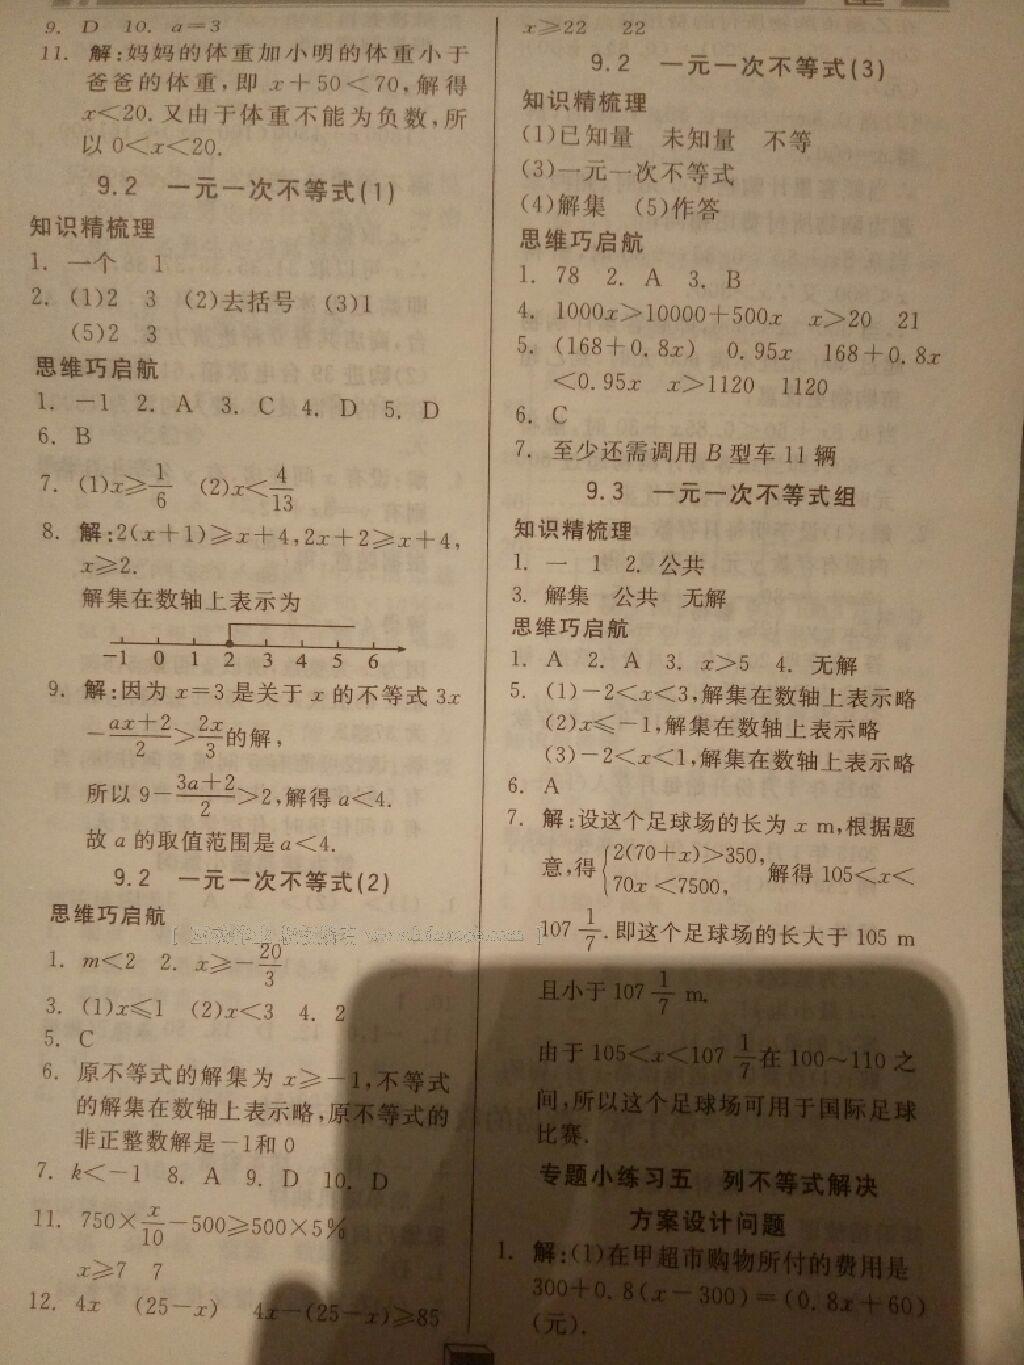 9. D 10. a=3
11. 解:妈妈的体重加小明的体重小于
爸爸的体重,即 x+50<70,解得
x<20. 又由于体重不能为负数,所
以 0<x<20.
9.2 一元一次不等式(1)
知识精梳理
1. 一个 1
2. (1)2 3 (2)去括号 (3)1
(5)2 3
思维巧启航
1. -1 2. A 3. C 4. D 5. D
6. B
7. (1)x≥1/6 (2)x<4/13
8. 解:2(x+1)≥x+4,2x+2≥x+4,
x≥2.
解集在数轴上表示为
-1 0 1 2 3 4 5 6
9. 解:因为 x=3 是关于 x 的不等式 3x
-(ax+2)/2>2x/3的解,
所以 9-(3a+2)/2>2,解得 a<4.
故 a 的取值范围是 a<4.
9.2 一元一次不等式(2)
思维巧启航
1. m<2 2. x≥-20/3
3. (1)x≤1 (2)x<3 4. 2
5. C
6. 原不等式的解集为 x≥-1,不等式
的解集在数轴上表示略,原不等式的
非正整数解是-1和0
7. k<-1 8. A 9. D 10. D
11. 750×x/10-500≥500×5%
x≥7 7
12. 4x (25-x) 4x-(25-x)≥85
x≥22 22
9.2 一元一次不等式(3)
知识精梳理
(1)已知量 未知量 不等
(3)一元一次不等式
(4)解集 (5)作答
思维巧启航
1. 78 2. A 3. B
4. 1000x>10000+500x x>20 21
5. (168+0.8x) 0.95x 168+0.8x
<0.95x x>1120 1120
6. C
7. 至少还需调用 B 型车 11 辆
9.3 一元一次不等式组
知识精梳理
1. 一 1 2. 公共
3. 解集 公共 无解
思维巧启航
1. A 2. A 3. x>5 4. 无解
5. (1)-2<x<3,解集在数轴上表示略
(2)x≤-1,解集在数轴上表示略
(3)-2<x<1,解集在数轴上表示略
6. A
7. 解:设这个足球场的长为 x m,根据题
意,得{2(70+x)>350, 70x<7500, 解得 105<x<
107 1/7. 即这个足球场的长大于 105 m
且小于 107 1/7 m.
由于 105<x<107 1/7 在 100~110 之
间,所以这个足球场可用于国际足球
比赛.
专题小练习五 列不等式解决
方案设计问题
1. 解:(1)在甲超市购物所付的费用是
300+0.8(x-300)=(0.8x+60)
(元).